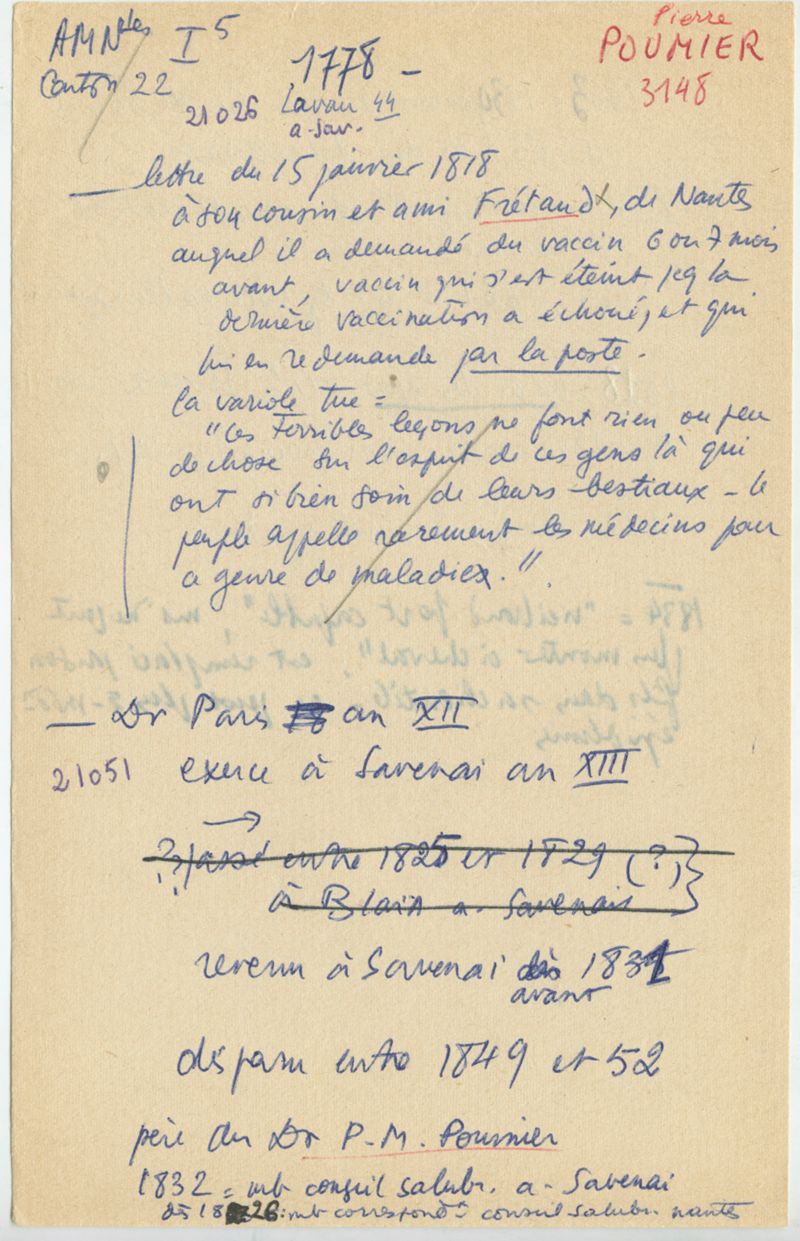 AMNtes I 5
Carton 22
1778 -
Pierre
POUMIER
3148
21026 Lavau 44
a-Sav.
— lettre du 15 janvier 1818
à son cousin et ami Frétaud, de Nantes
auquel il a demandé du vaccin 6 ou 7 mois
avant, vaccin qui s'est éteint pcq la
dernière vaccination a échoué, et qui
lui en redemande par la poste.
la variole tue =
"Ces terribles leçons ne font rien ou peu
de chose sur l'esprit de ces gens là qui
ont si bien soin de leurs bestiaux - le
peuple appelle rarement les médecins pour
ce genre de maladies."
— Dr Paris an XII
21051 exerce à Savenai an XIII
→
?? passé entre 1825 et 1829 (?)
à Blain a-Savenais
revenu à Savenai dès 1831
avant
disparu entre 1849 et 52
père du Dr P-M. Poumier
1832 = mb conseil salubr. a-Savenai
dès 1826: mb correspondt conseil salubr. nantes